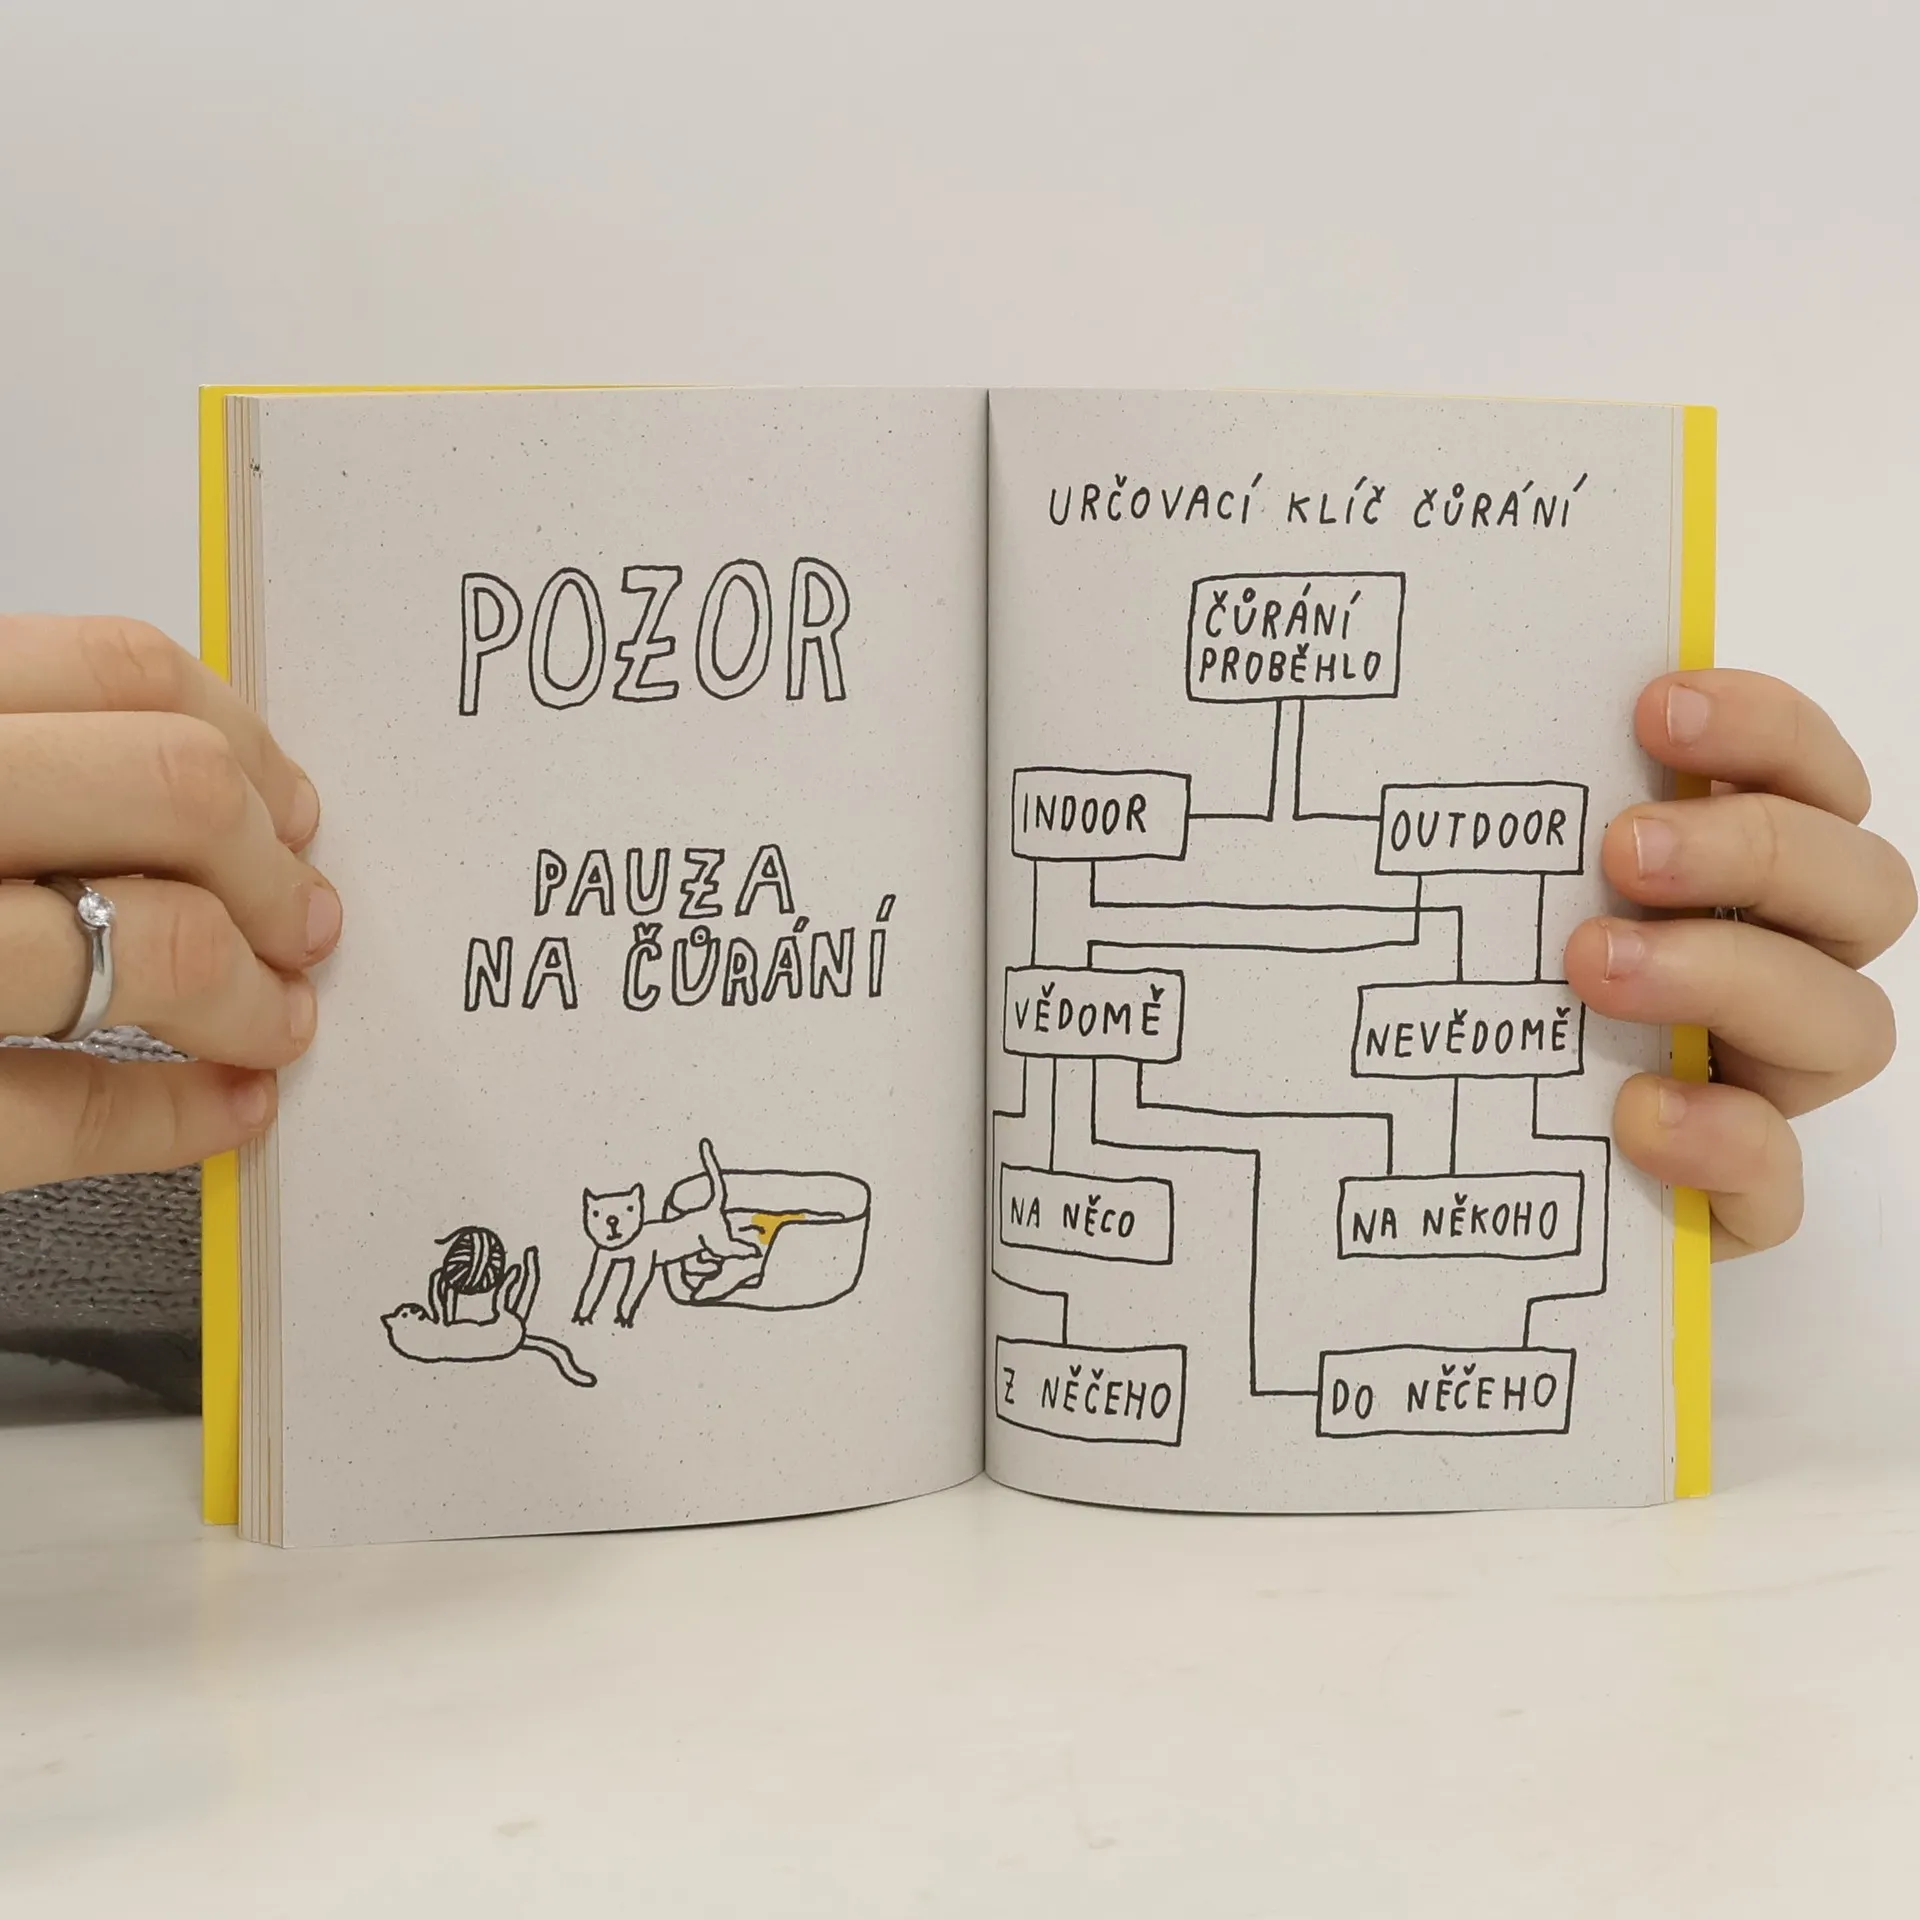 POZOR
PAUZA
NA ČŮRÁNÍ
URČOVACÍ KLÍČ ČŮRÁNÍ
ČŮRÁNÍ
PROBĚHLO
INDOOR
OUTDOOR
VĚDOMĚ
NEVĚDOMĚ
NA NĚCO
NA NĚKOHO
Z NĚČEHO
DO NĚČEHO